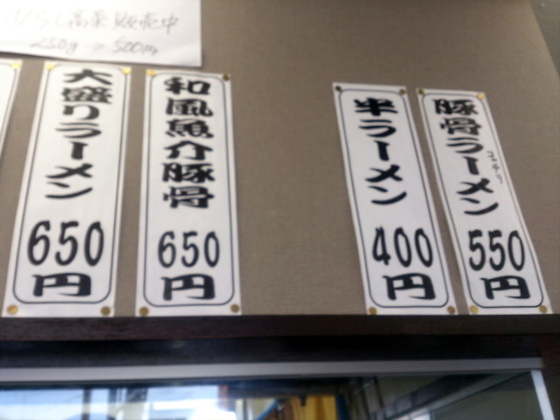 からし高菜販売中
250g → 500円
大盛りラーメン
650円
和風魚介豚骨
650円
半ラーメン
400円
豚骨ラーメン
コッテリ
550円